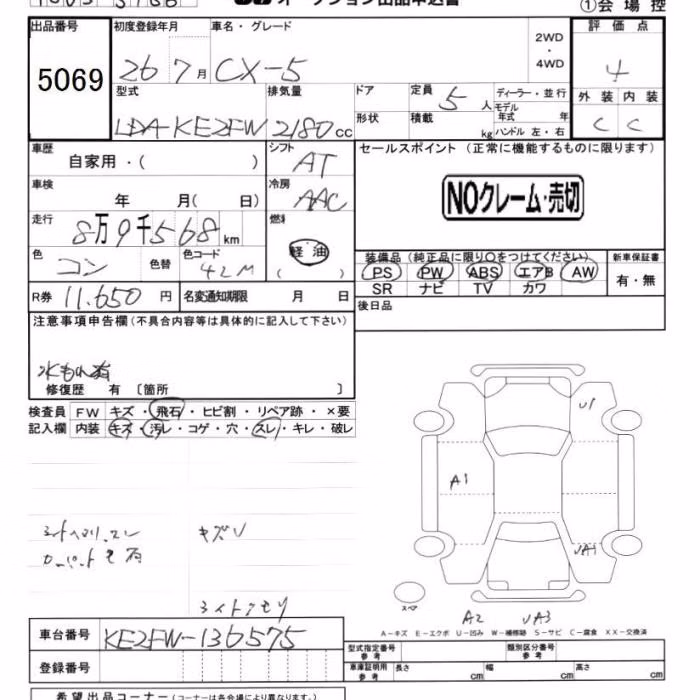 オークション出品申込書
①会場控
出品番号 初度登録年月 車名・グレード 2WD・4WD 評価点
5069 26 7月 CX-5 4
型式 排気量 ドア 定員 5人 ディーラー・並行
外装 内装
LDA-KE2FW 2180cc 形状 積載 kg モデル年式 年 ハンドル 左・右
C C
車歴 自家用・( ) シフト AT
セールスポイント(正常に機能するものに限ります)
車検 年 月( 日) 冷房 AAC
NOクレーム・売切
走行 8万9千568km 燃料 軽油 ( )
色 コン 色替 色コード 42M
装備品(純正品に限り○をつけてください) 新車保証書
PS PW ABS エアB AW 有・無
SR ナビ TV カワ
R券 11.650円 名変通知期限 月 日
後日品
注意事項申告欄(不具合内容等は具体的に記入して下さい)
水もれ有
修復歴 有 〔箇所 〕
検査員 FW キズ・飛石・ヒビ割・リペア跡・×要
記入欄 内装 キズ・汚レ・コゲ・穴・スレ・キレ・破レ
U1
A1
キズU
UA1
スペア
A2 UA3
A-キズ E-エクボ U-凹み W-補修跡 S-サビ C-腐食 XX-交換済
車台番号 KE2FW-136575
型式指定番号 参考 類別区分番号 参考
登録番号
車庫証明用 参考 長さ cm 幅 cm 高さ cm
希望出品コーナー(コーナーは各会場により異なります。)